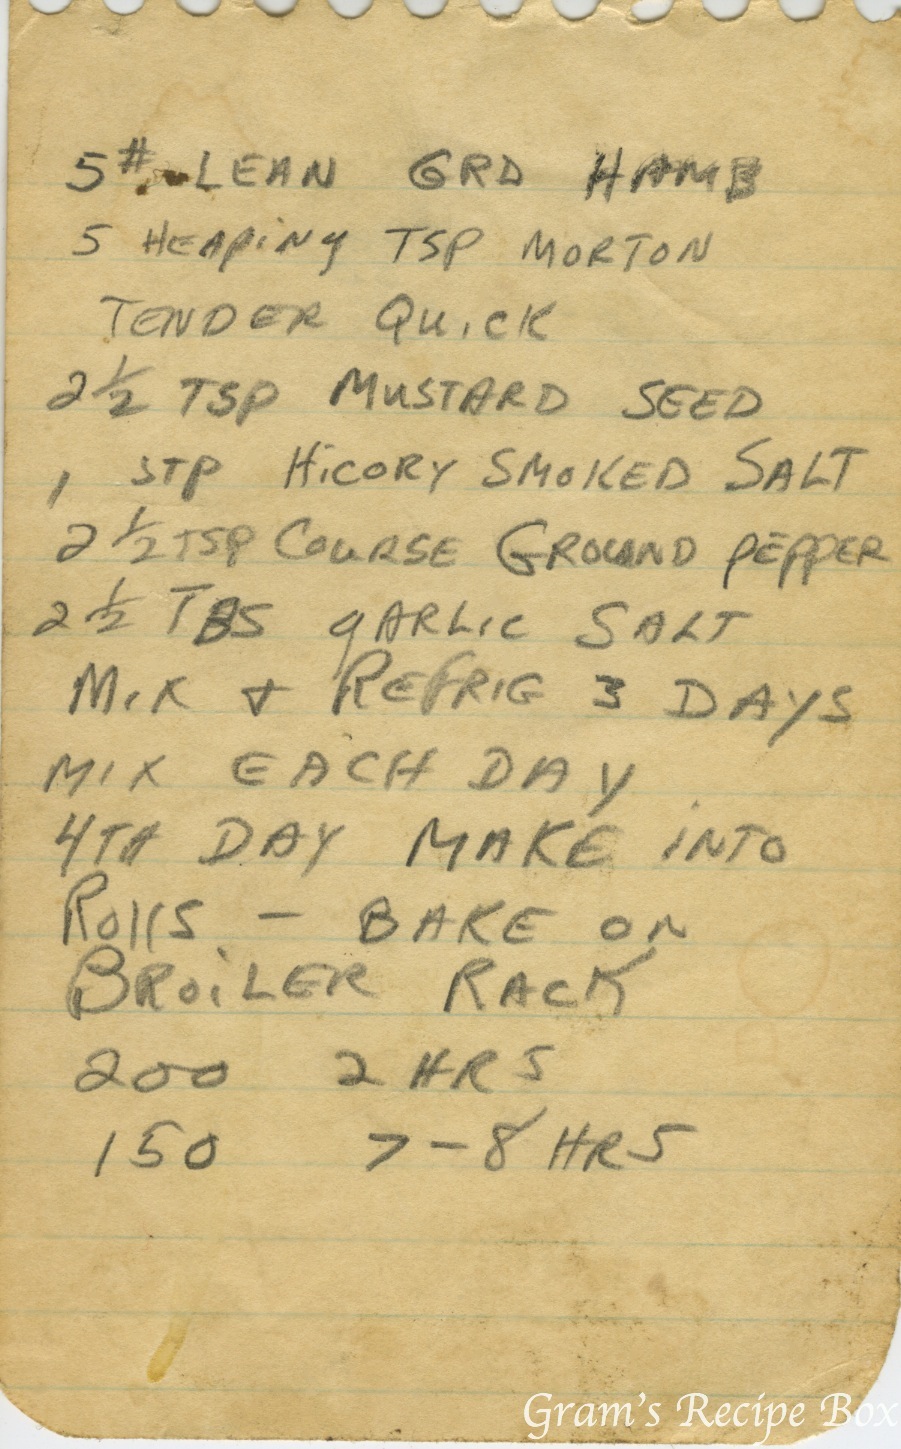 5# LEAN GRD HAMB
5 HEAPiNg TSP MORTON
TENDER QUiCK
2 1/2 TSP MUSTARD SEED
1 STP HiCORY SMOKED SALT
2 1/2 TSP COURSE GROUND PEPPER
2 1/2 TBS gARLiC SALT
MiX + REFRIG 3 DAYS
MIX EACH DAY
4TH DAY MAKE iNTO
ROllS - BAKE ON
BROiLER RACK
200 2 HRS
150 7-8 HRS
Gram's Recipe Box